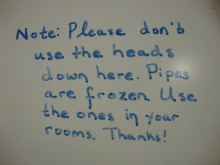 Note: Please don't
use the heads
down here. Pipes
are frozen. Use
the ones in your
rooms. Thanks!